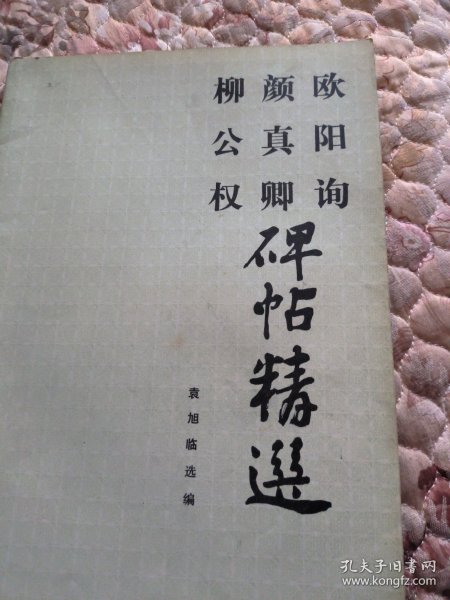 欧阳询
颜真卿
柳公权
碑帖精選
袁旭临选编
孔夫子旧书网
www.kongfz.com